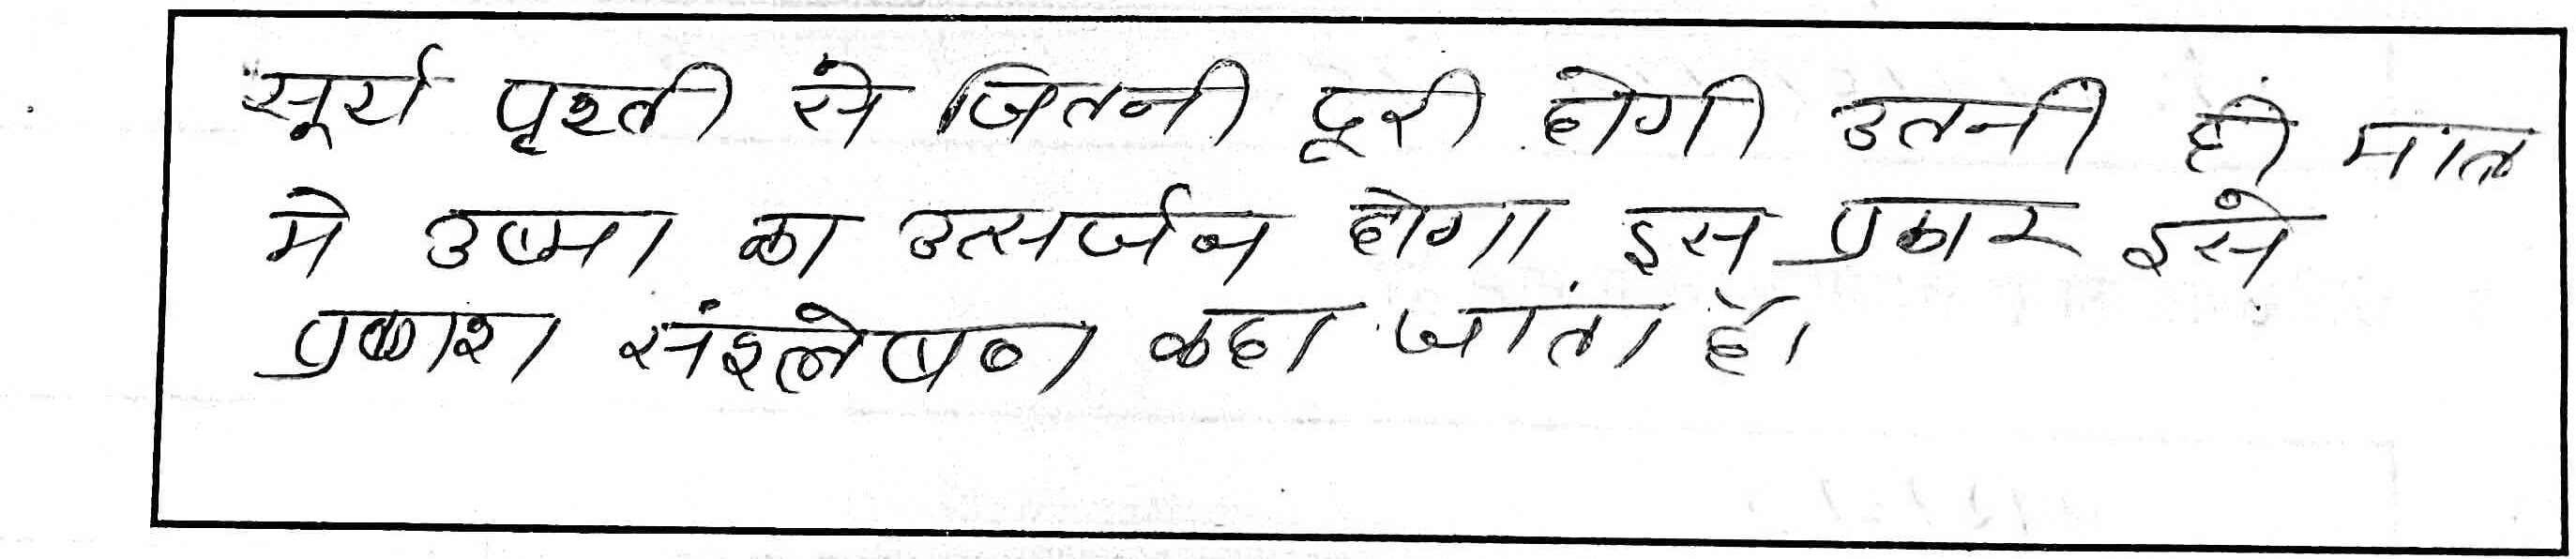 सूर्य पृश्ती से जितनी दूरी होगी उतनी ही मात
मे उष्मा का उत्सर्जन होगा इस प्रकार इसे
प्रकाश संश्लेषण कहा जाता है।